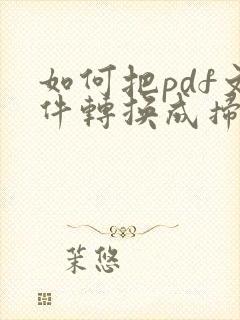 如何把pdf文
件轉換成掃
茉悠